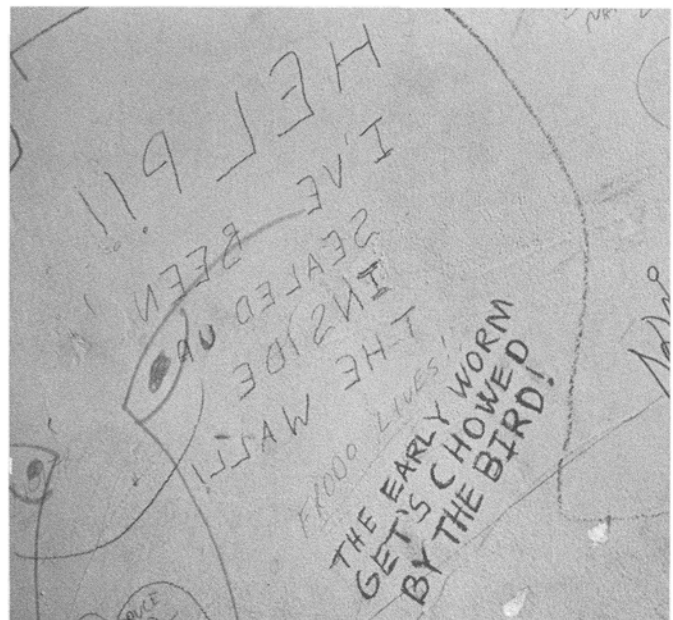 HELP!!!
I'VE BEEN
SEALED UP
INSIDE
THE WALL!!
FRODO LIVES!
THE EARLY WORM
GET'S CHOWED
BY THE BIRD!